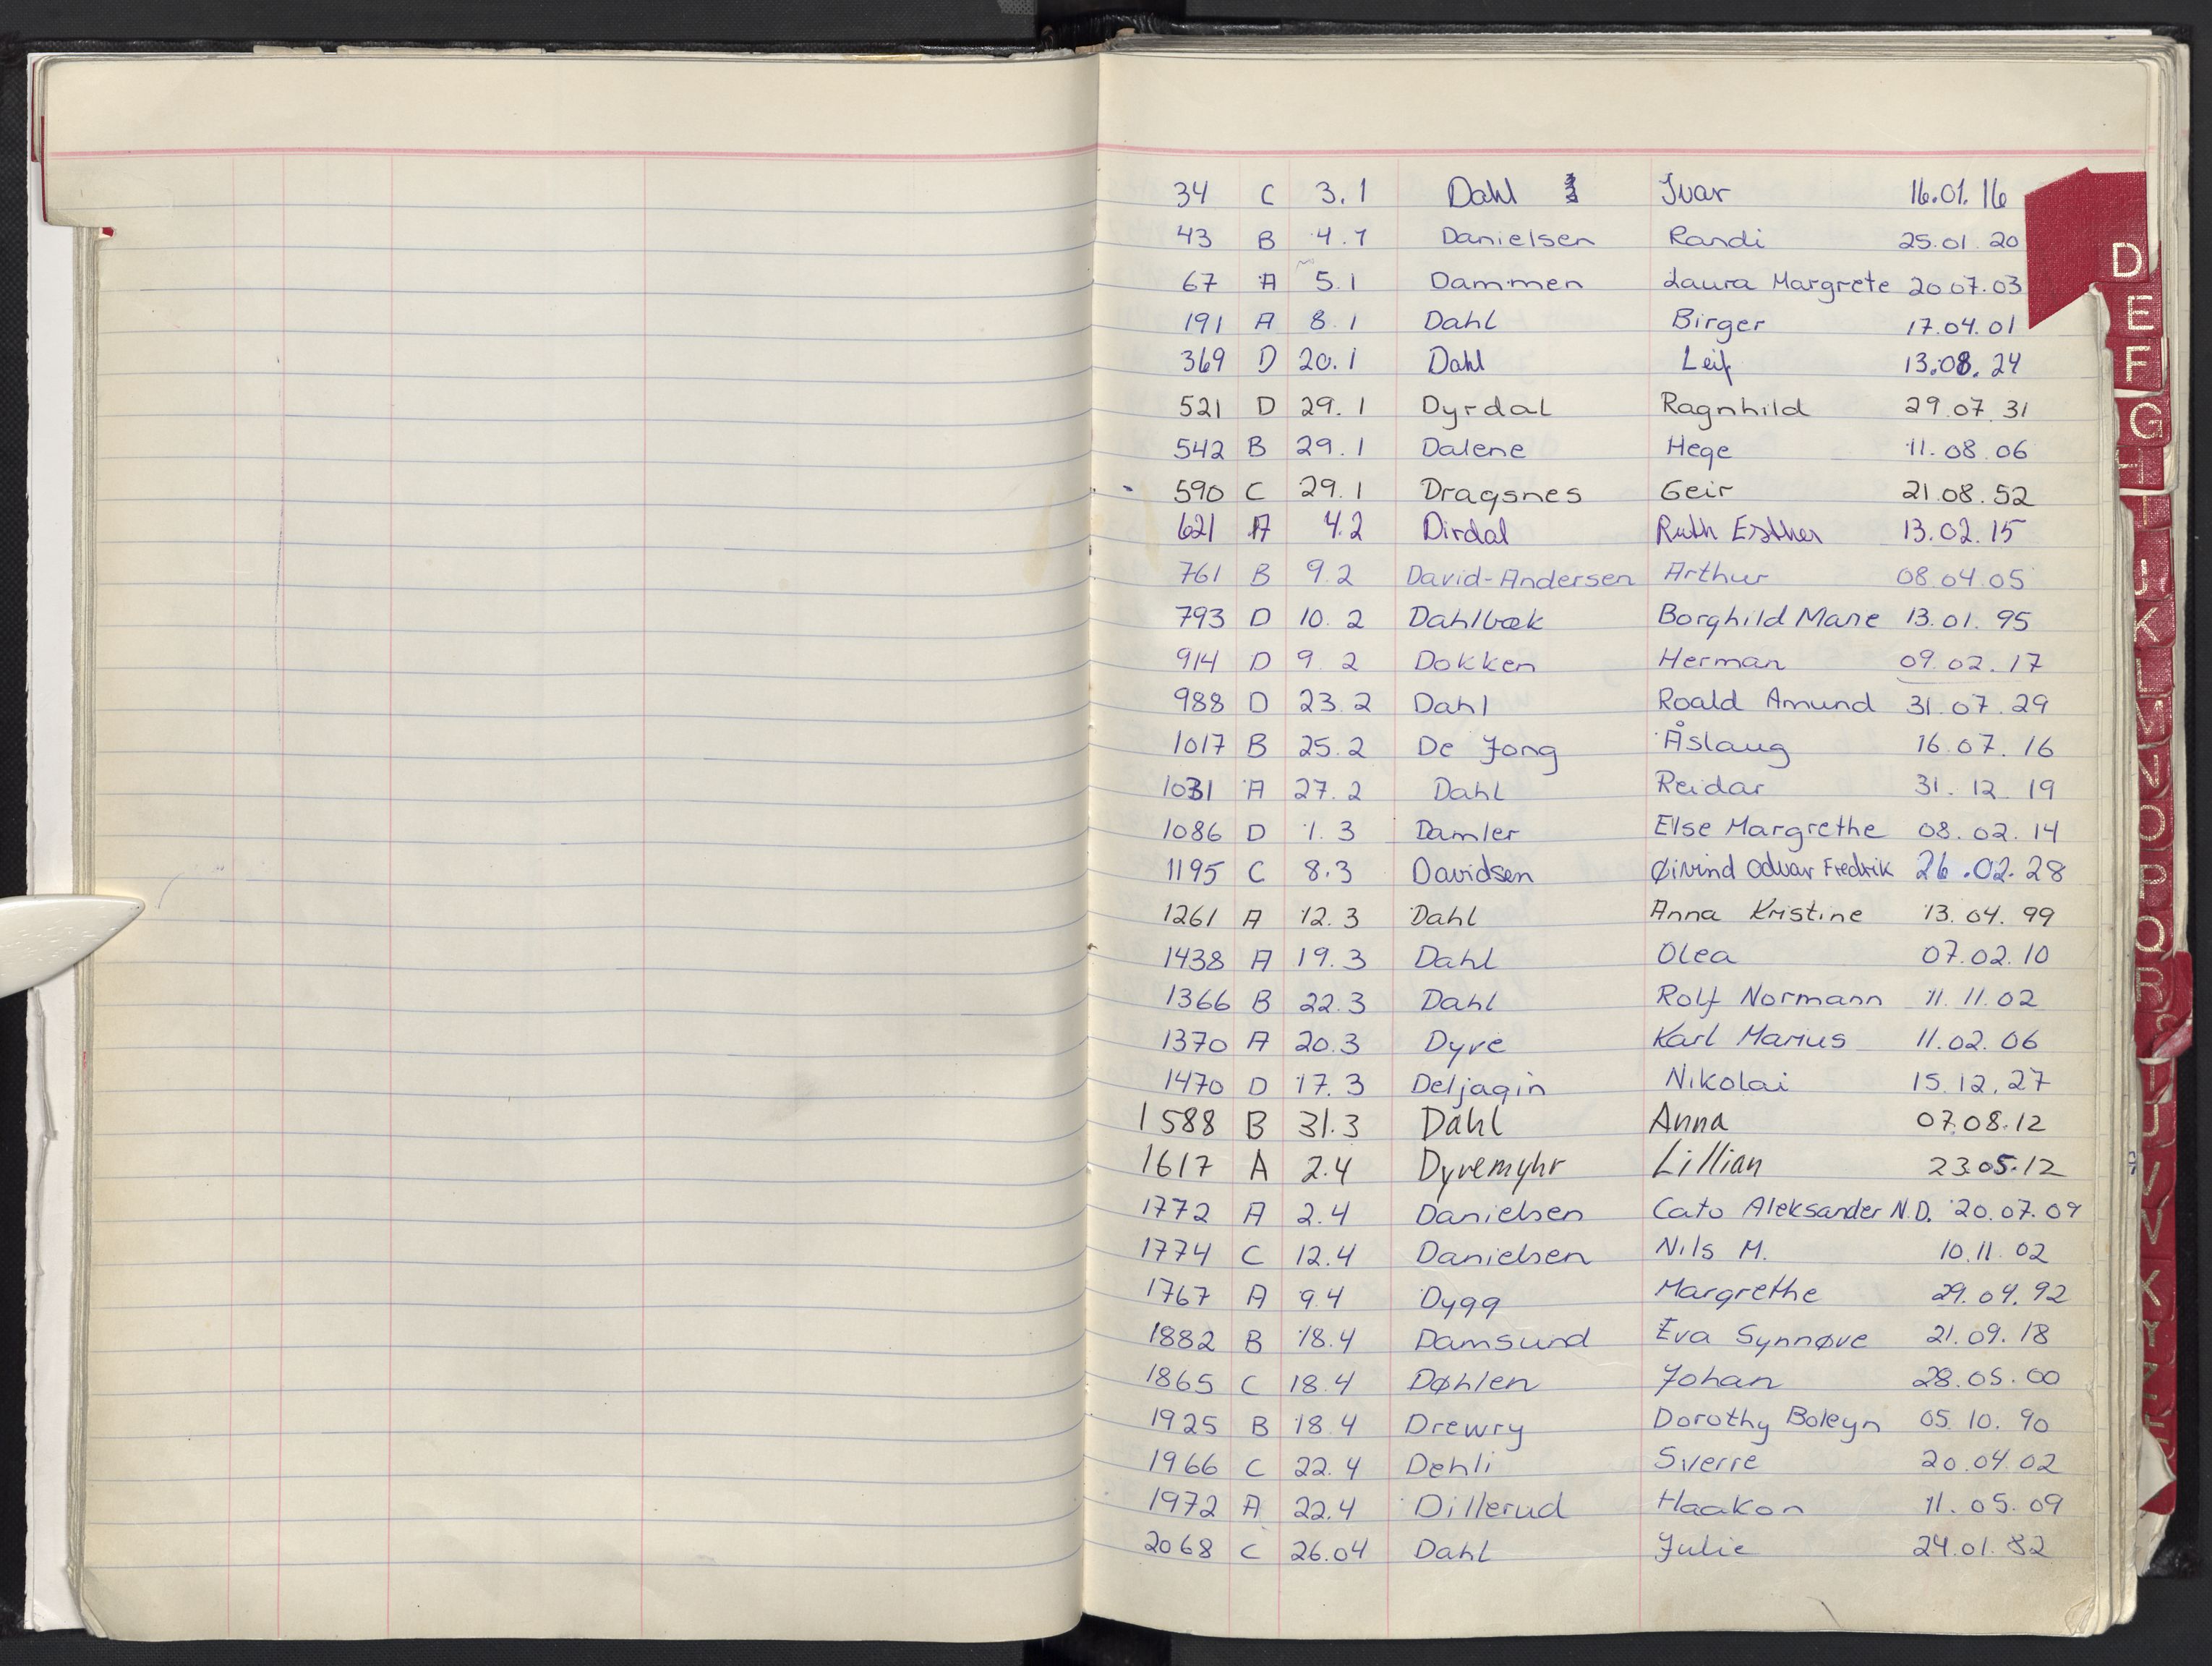 34 C 3.1 Dahl Ivar 16.01.16
43 B 4.1 Danielsen Randi 25.01.20
67 A 5.1 Dammen Laura Margrete 20.07.03
191 A 8.1 Dahl Birger 17.04.01
369 D 20.1 Dahl Leif 13.08.24
521 D 29.1 Dyrdal Ragnhild 29.07.31
542 B 29.1 Dalene Hege 11.08.06
590 C 29.1 Dragsnes Geir 21.08.52
621 A 4.2 Dirdal Ruth Esther 13.02.15
761 B 9.2 David-Andersen Arthur 08.04.05
793 D 10.2 Dahlbæk Borghild Marie 13.01.95
914 D 9.2 Dokken Herman 09.02.17
988 D 23.2 Dahl Roald Amund 31.07.29
1017 B 25.2 De Jong Åslaug 16.07.16
1031 A 27.2 Dahl Reidar 31.12.19
1086 D 1.3 Damler Else Margrethe 08.02.14
1195 C 8.3 Davidsen Øivind Odvar Fredrik 26.02.28
1261 A 12.3 Dahl Anna Kristine 13.04.99
1438 A 19.3 Dahl Olea 07.02.10
1366 B 22.3 Dahl Rolf Normann 11.11.02
1370 A 20.3 Dyve Karl Marius 11.02.06
1470 D 17.3 Deljagin Nikolai 15.12.27
1588 B 31.3 Dahl Anna 07.08.12
1617 A 2.4 Dyvemyhr Lillian 23.05.12
1772 A 2.4 Danielsen Cato Aleksander N.D. 20.07.09
1774 C 12.4 Danielsen Nils M. 10.11.02
1767 A 9.4 Dygg Margrethe 29.04.92
1882 B 18.4 Damsund Eva Synnøve 21.09.18
1865 C 18.4 Døhlen Johan 28.05.00
1925 B 18.4 Drewry Dorothy Boleyn 05.10.90
1966 C 22.4 Dehli Sverre 20.04.02
1972 A 22.4 Dillerud Haakon 11.05.09
2068 C 26.04 Dahl Julie 24.01.82
D
E
F
G
H
I
J
K
L
M
N
O
P
Q
R